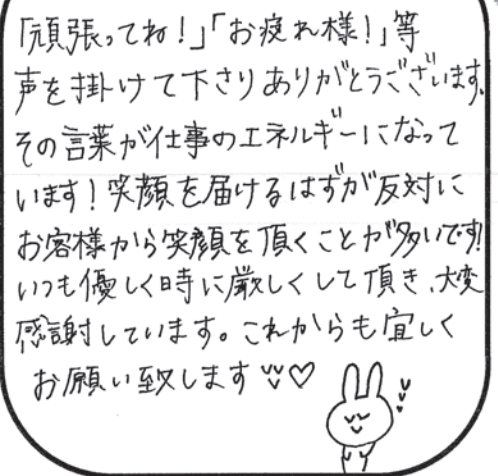 「頑張ってね!」「お疲れ様!」等
声を掛けて下さりありがとうございます。
その言葉が仕事のエネルギーになって
います!笑顔を届けるはずが反対に
お客様から笑顔を頂くことが多いです!
いつも優しく時に厳しくして頂き、大変
感謝しています。これからも宜しく
お願い致します♡